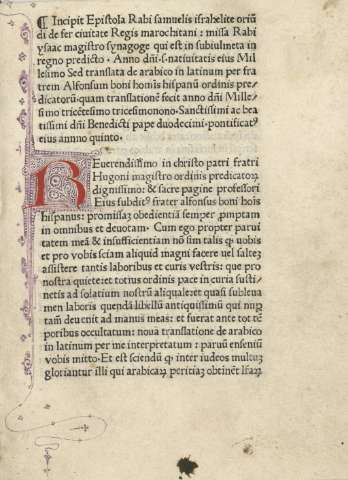 ¶ Incipit Epistola Rabi samuelis israhelite oriũ
di de fer ciuitate Regis marochitani : missa Rabi
ysaac magistro synagoge qui est in subiulmeta in
regno predicto. Anno dñi .s. natiuitatis eius Mil
lesimo Sed translata de arabico in latinum per fra
trem Alfonsum boni hoı̃s hispanũ ordinis pre
dicatorũ. quam translationẽ fecit anno dñi Mille
simo tricẽtesimo tricesimonono. Sanctissimi ac bea
tissimi dñi Benedicti pape duodecimi. pontificatꝰ
eius anno quinto.
REuerendissimo in christo patri fratri
Hugoni magistro ordinis predicatoꝝ
dignissimo: & sacre pagine professori
Eius subditꝰ frater alfonsus boni hoı̃s
hispanus: promissaꝫ obedientiã semper ꝓmptam
in omnibus et deuotam. Cum ego propter parui
tatem meã & insufficientiam nõ sim talis ꝙ uobis
et pro vobis sciam aliquid magni facere uel saltẽ
assistere tantis laboribus et curis vestris: que pro
nostra quiete: et totius ordinis pace in curia susti
netis ad solatium nostrũ aliquale: et quasi subleua
men laboris quendã libellũ antiquissimũ qui nup
tam deuenit ad manus meas: et fuerat ante tot tẽ
poribus occultatum: noua translatione de arabico
in latinum per me interpretatum: paruũ enseniũ
vobis mitto. Et est sciendũ ꝙ inter iudeos multuꝫ
gloriantur illi qui arabicaꝝ peritiaꝫ obtinẽt lr̃aꝝ